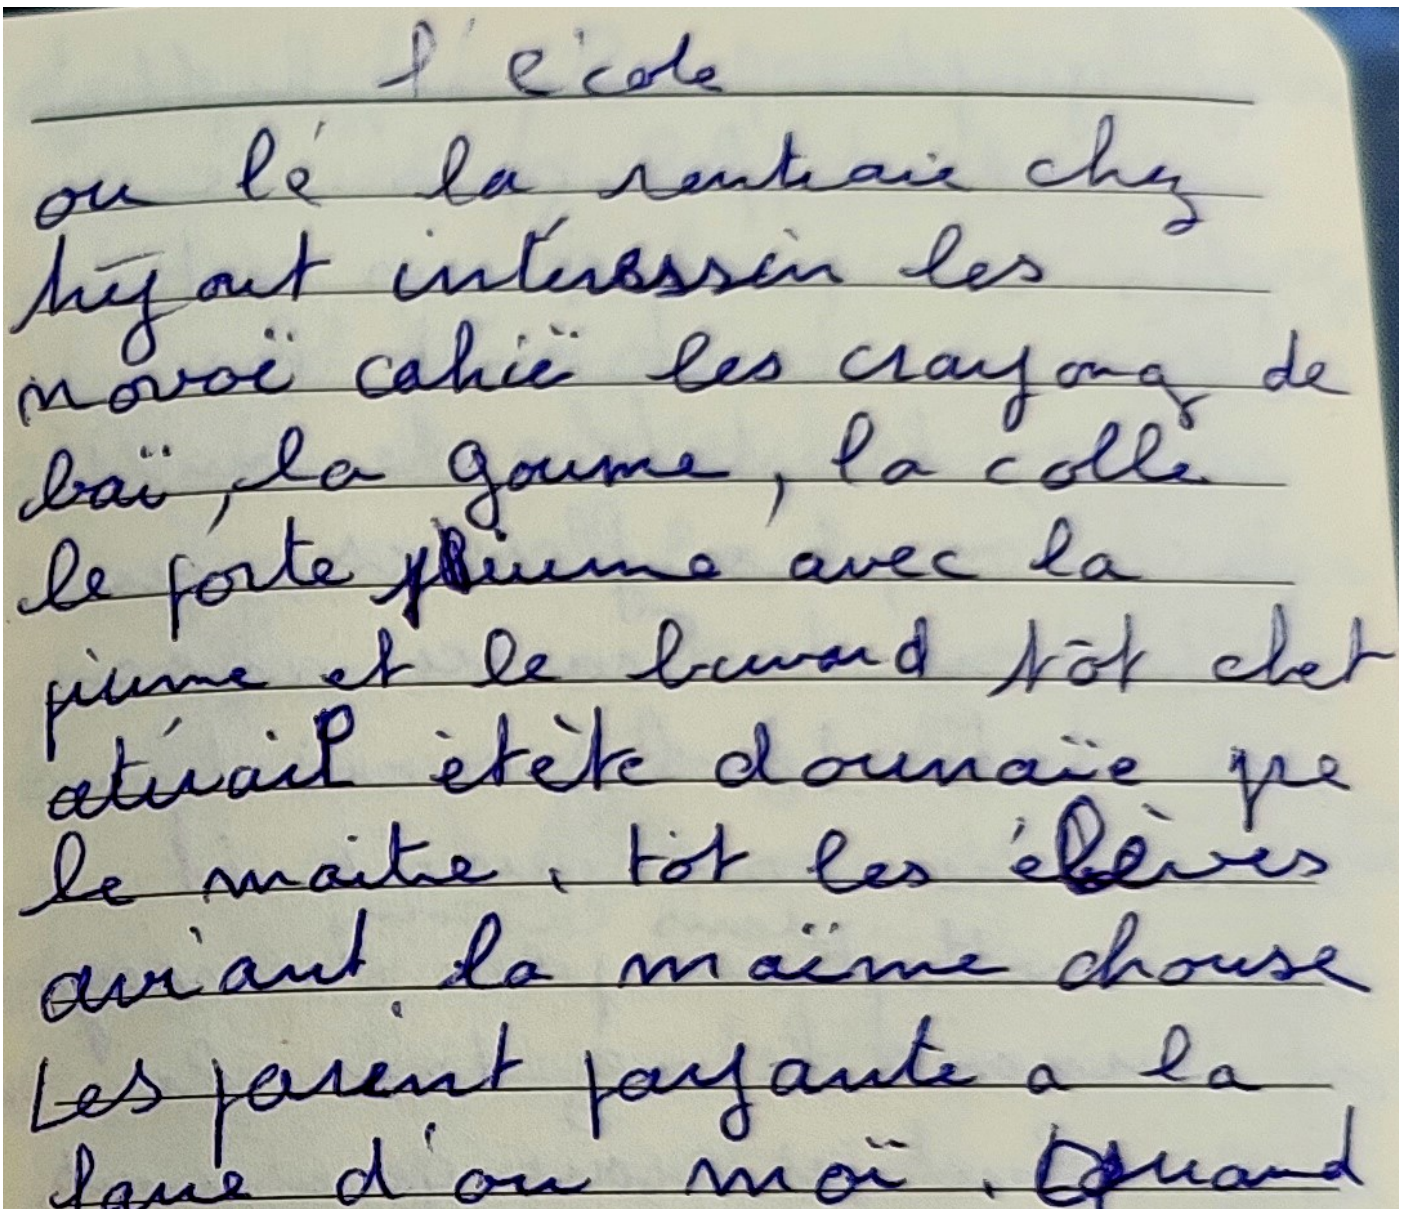 l'école
ou lé la rentraie chez
les novoï cahië les crayong de
baï, la goume, la colle
le porte piume avec la
piume et le buvard tòt chet
atirail ètète dounaïe pe
le maitre. tòt les élèves
aviant la maïme chouse
Les parint payante a la
fane d'ou moï. Quand